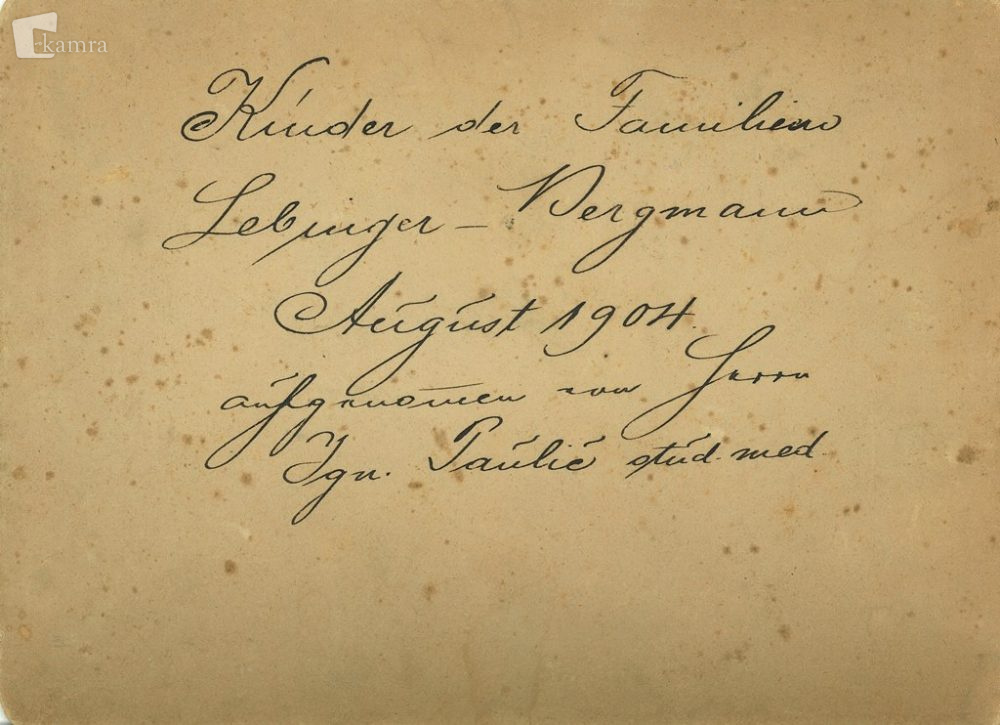 kamra
Kinder der Familien
Lebinger - Bergmann
August 1904.
aufgenom̅en von Herrn
Ign. Paulič stud. med.